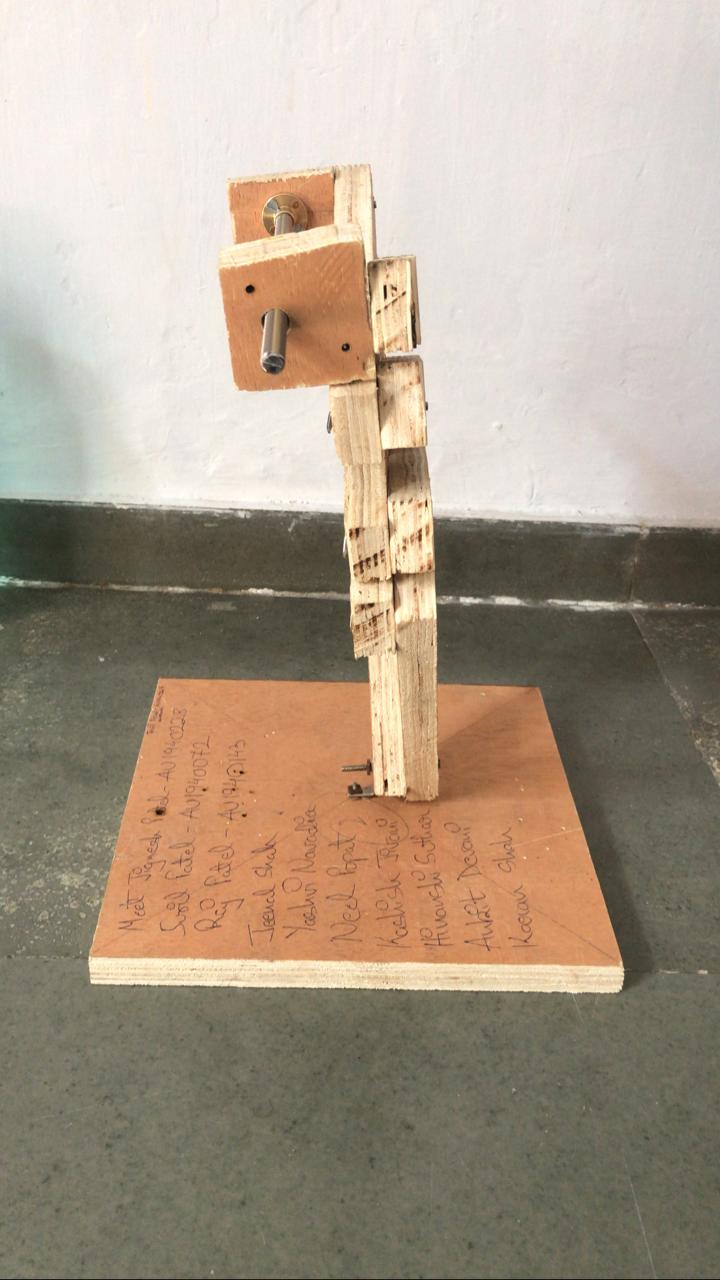 Meet Jignesh Patel - AU1940228
Smit Patel - AU1940072
Raj Patel - AU1940143
Jeenal Shah
Yashvi Navadia
Neel Popat
Kashish Jivani
Himanshi Suthar
Ankit Devani
Karan Shah